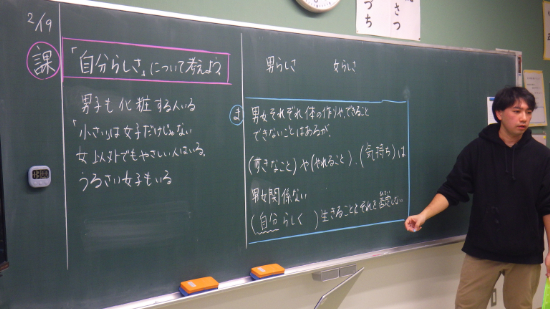 2/19
課
「自分らしさ」について考えよう
男子も化粧する人いる
「小さい」は女子だけじゃない
女以外でもやさしい人はいる。
うるさい女子もいる
男らしさ
女らしさ
ま
男女それぞれ体の作りや、できること
できないことはあるが、
(すきなこと)や(やれること)、(気持ち)は
男女関係ない
(自分らしく)生きることをそれを否定しない
さつ
づち